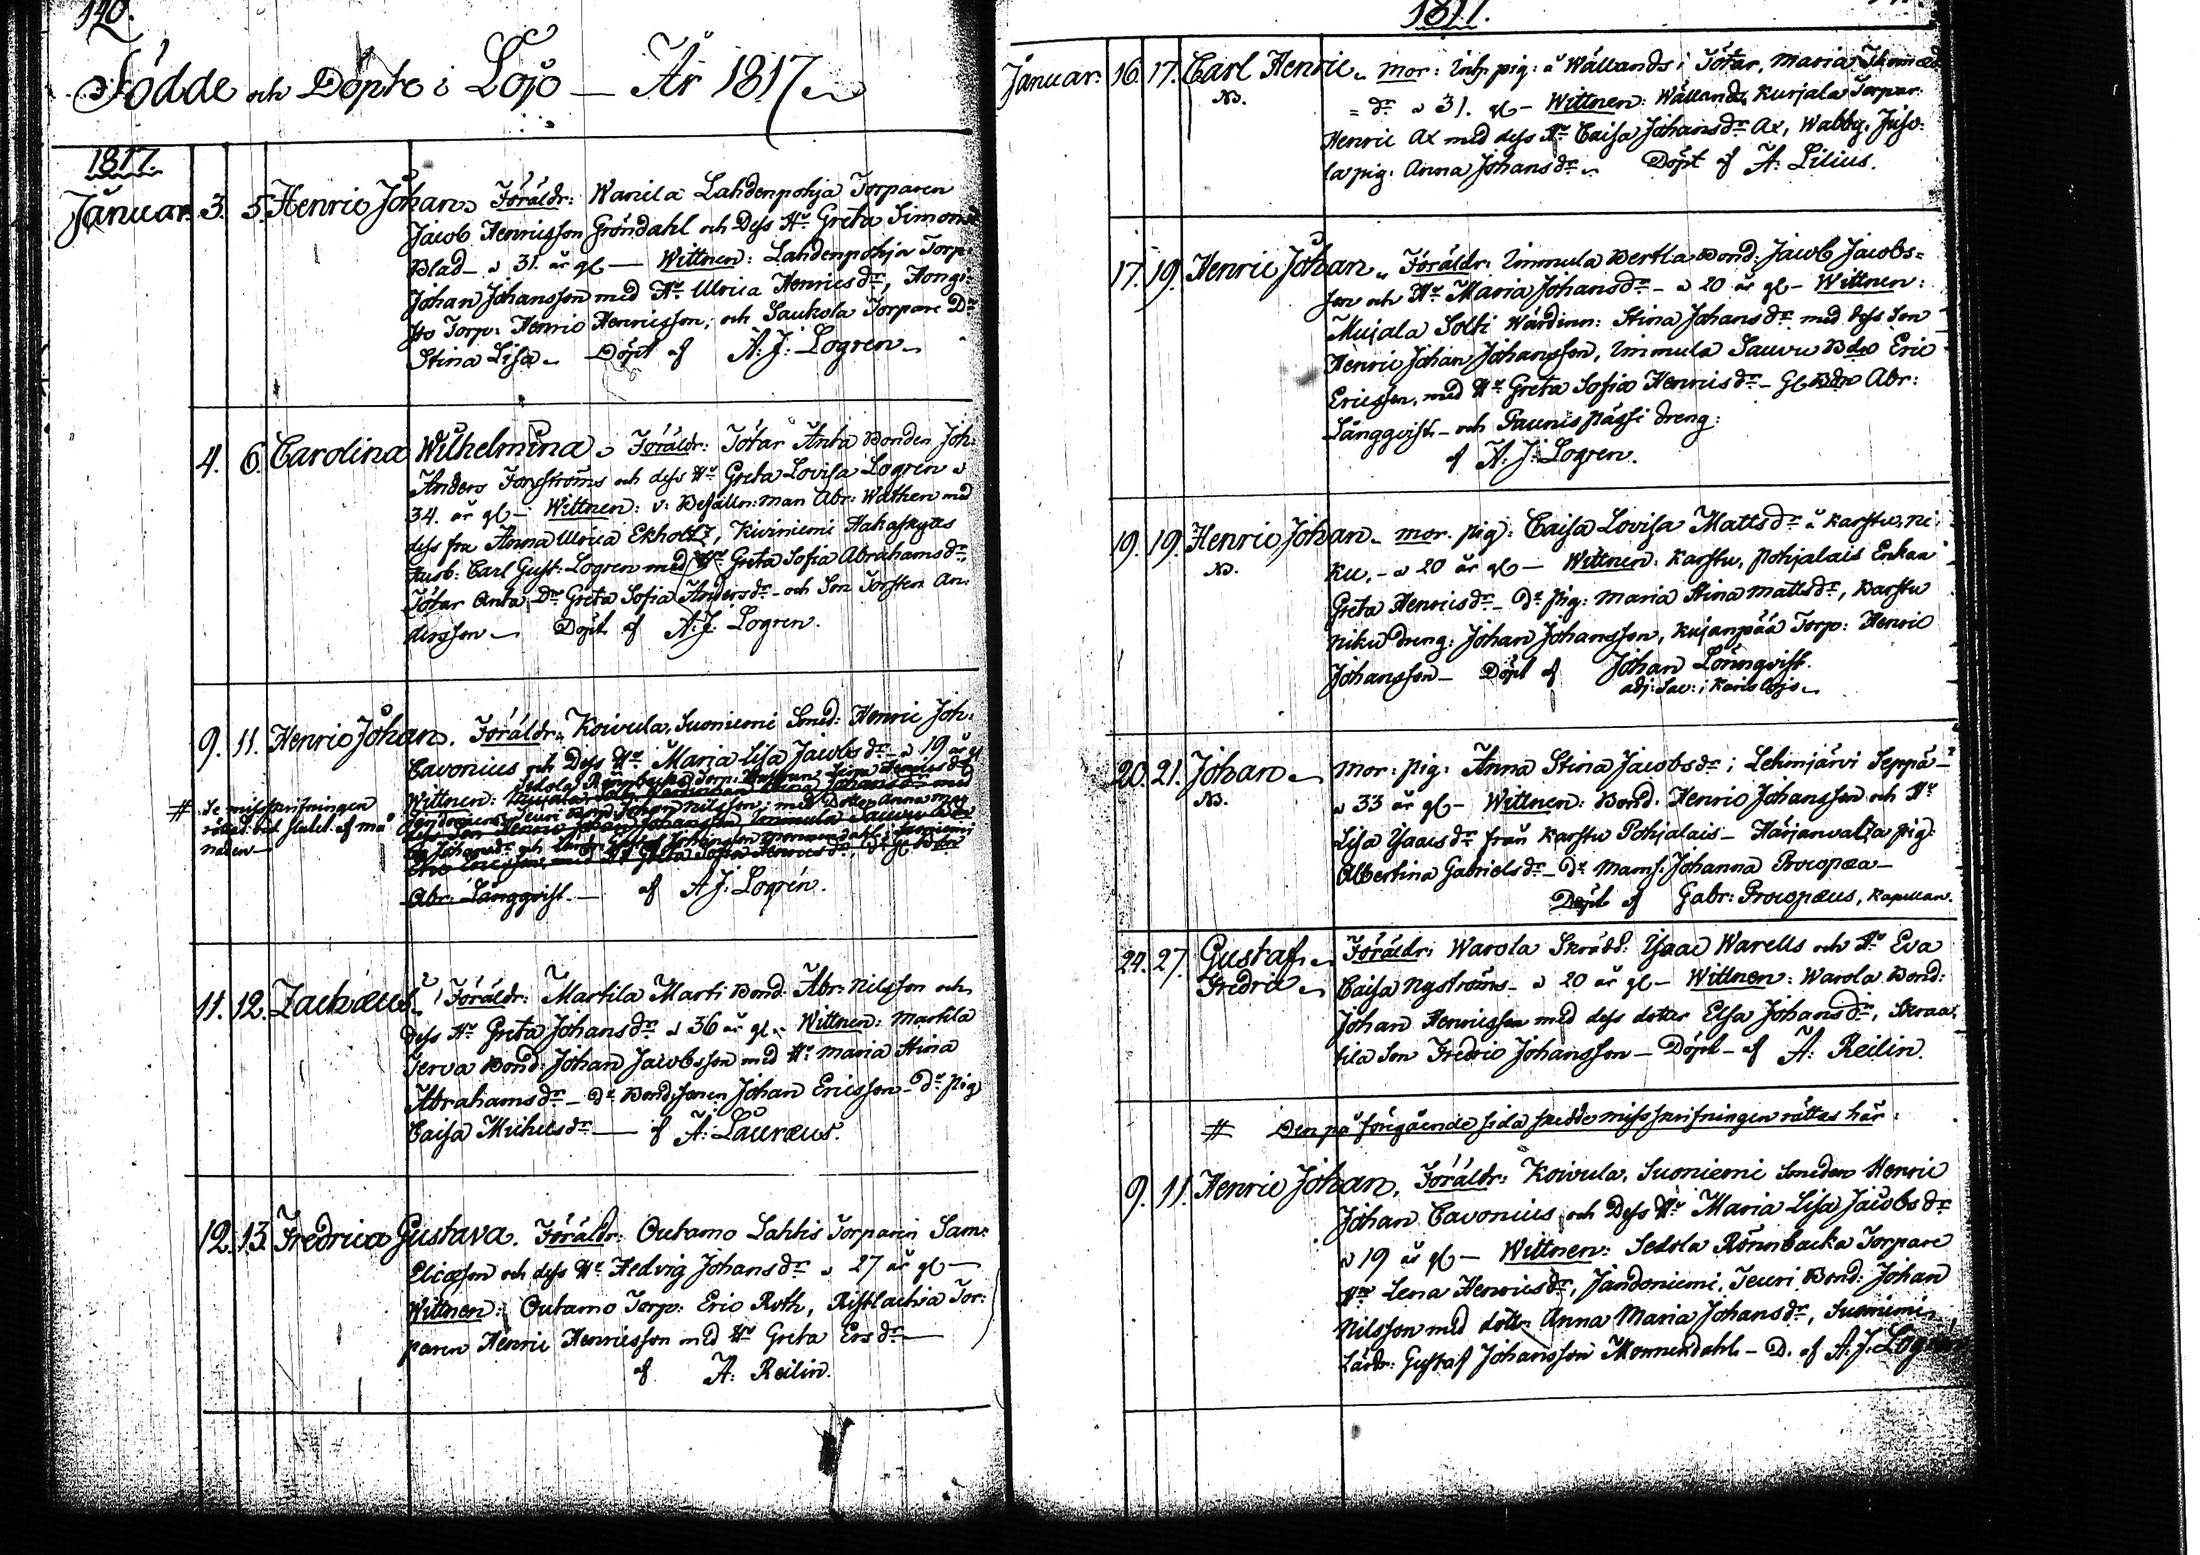 140.
Födde och Döpte i Lojo — År 1817
1817.
Januar. 3. 5. Henric Johan Föräldr: Wanila Lahdenpohja Torparen
Jacob Henricsson Gröndahl och Dess Hu Greta Simons
Blad — 31. år gl — Wittnen: Lahdenpohja Torp:
Johan Johansson med Hu Ulrica Henricsdr, Hongi
sto Torp: Henric Henricsson, och Laukola Torpare Dr
Stina Lisa — Döpt af A: J: Logren
4. 6. Carolina Wilhelmina Föräldr: Tötar Anta Bonden Joh:
Anders Forsströms och dess Hu Greta Lovisa Logren
34. år gl — Wittnen: v: Befalln: man Abr: Wathen med
dess fru Anna Ulrica Ekholtz, Kiviniemi
Carl Gust: Logren med Hu Greta Sofia Abrahamsdr
Tötar Anta Dr Greta Sofia Andersdr — och Son Torsten An:
dersson — Döpt af A: J: Logren.
9. 11. Henric Johan. Föräldr: Koivula, Suoniemi Smed: Henric Joh:
Cavonius och Dess Hu Maria Lisa Jacobsdr 19 år gl
Wittnen:
# Se misskrifningen
rättad vid slutet af må
naden —
Abr: Långqvist. — af A J: Logrén.
11. 12. Zachæus Föräldr: Martila Marti Bond: Abr: Nilsson och
dess Hu Greta Johansdr 36 år gl. Wittnen: Martila
Serva Bond: Johan Jacobsson med Hu Maria Stina
Abrahamsdr — Dr Bondesonen Johan Ericsson — Dr pig
Caisa Michelsdr — af A: Lauræus.
12. 13. Fredrica Gustava. Föräldr: Outamo Lahtis Torparen Sam:
Eliæson och dess Hu Hedvig Johansdr 27 år gl —
Wittnen: Outamo Torp: Eric Roth, Ristlachta Tor:
paren Henric Henricsson med Hu Greta Ersdr —
af A: Reilin.
1817.
Januar. 16. 17. Carl Henric Mor: Inh: pig: å Wällands i Tötar, Maria
NB.
= dr 31. gl — Wittnen: Wällands Kurjala Torpar:
Henric Ax med dess Hu Caisa Johansdr Ax, Wabby, Juso:
la pig: Anna Johansdr Döpt af A: Lilius.
17. 19. Henric Johan Föräldr: Immula Bertla Bond: Jacob Jacobs=
son och Hu Maria Johansdr — 20 år gl — Wittnen:
Mujala Solti Wärdinn: Stina Johansdr med dess Son
Henric Johan Johansson, Immula Sauvu Bde Eric
Ericsson, med Hu Greta Sofia Henricsdr — Gl Bde Abr:
Långqvist — och Paunis Pässi dreng:
af A. J: Logren.
19. 19. Henric Johan — mor. pig: Caisa Lovisa Mattsdr å Karstu, ni
NB.
ku, — 20 år gl — Wittnen: Karstu, Pohjalais Enkan
Greta Henricsdr — Dr pig: Maria Stina Mattsdr, Karstu
Niku dreng: Johan Johansson, Kujanpää Torp: Henric
Johansson — Döpt af Johan Lönnqvist.
adj: Sac: i Karislojo
20. 21. Johan Mor: pig: Anna Stina Jacobsdr i Lehmjärvi Seppä —
NB.
33 år gl — Wittnen: Bond: Henric Johansson och Hu
Lisa Ysacsdr från Karstu Pohjalais — Härjanvatsa pig:
Albertina Gabrielsdr — Dr Mams: Johanna Procopæa —
Döpt af Gabr: Procopæus, Kapellan.
24. 27. Gustaf Föräldr: Warola Skrädd: Ysaac Warells och Hu Eva
Fredric Caisa Nyströms — 20 år gl — Wittnen: Warola Bond:
Johan Henricsson med dess dotter Elsa Johansdr, Skraa
tila Son Fredric Johansson — Döpt — af A: Reilin.
# Den på föregående sida skedde misskrifningen rättas här:
9. 11. Henric Johan, Föräldr: Koivula, Suoniemi Smeden Henric
Johan Cavonius, och Dess Hu Maria Lisa Jacobsdr
19 år gl — Wittnen: Sedola Rönnbacka Torpare
Hu Lena Henricsdr, Jandoniemi, Teuri Bond: Johan
Nilsson med dott: Anna Maria Johansdr, Suoniemi
Gustaf Johansson Mormendahl — D. af A. J. Logrén